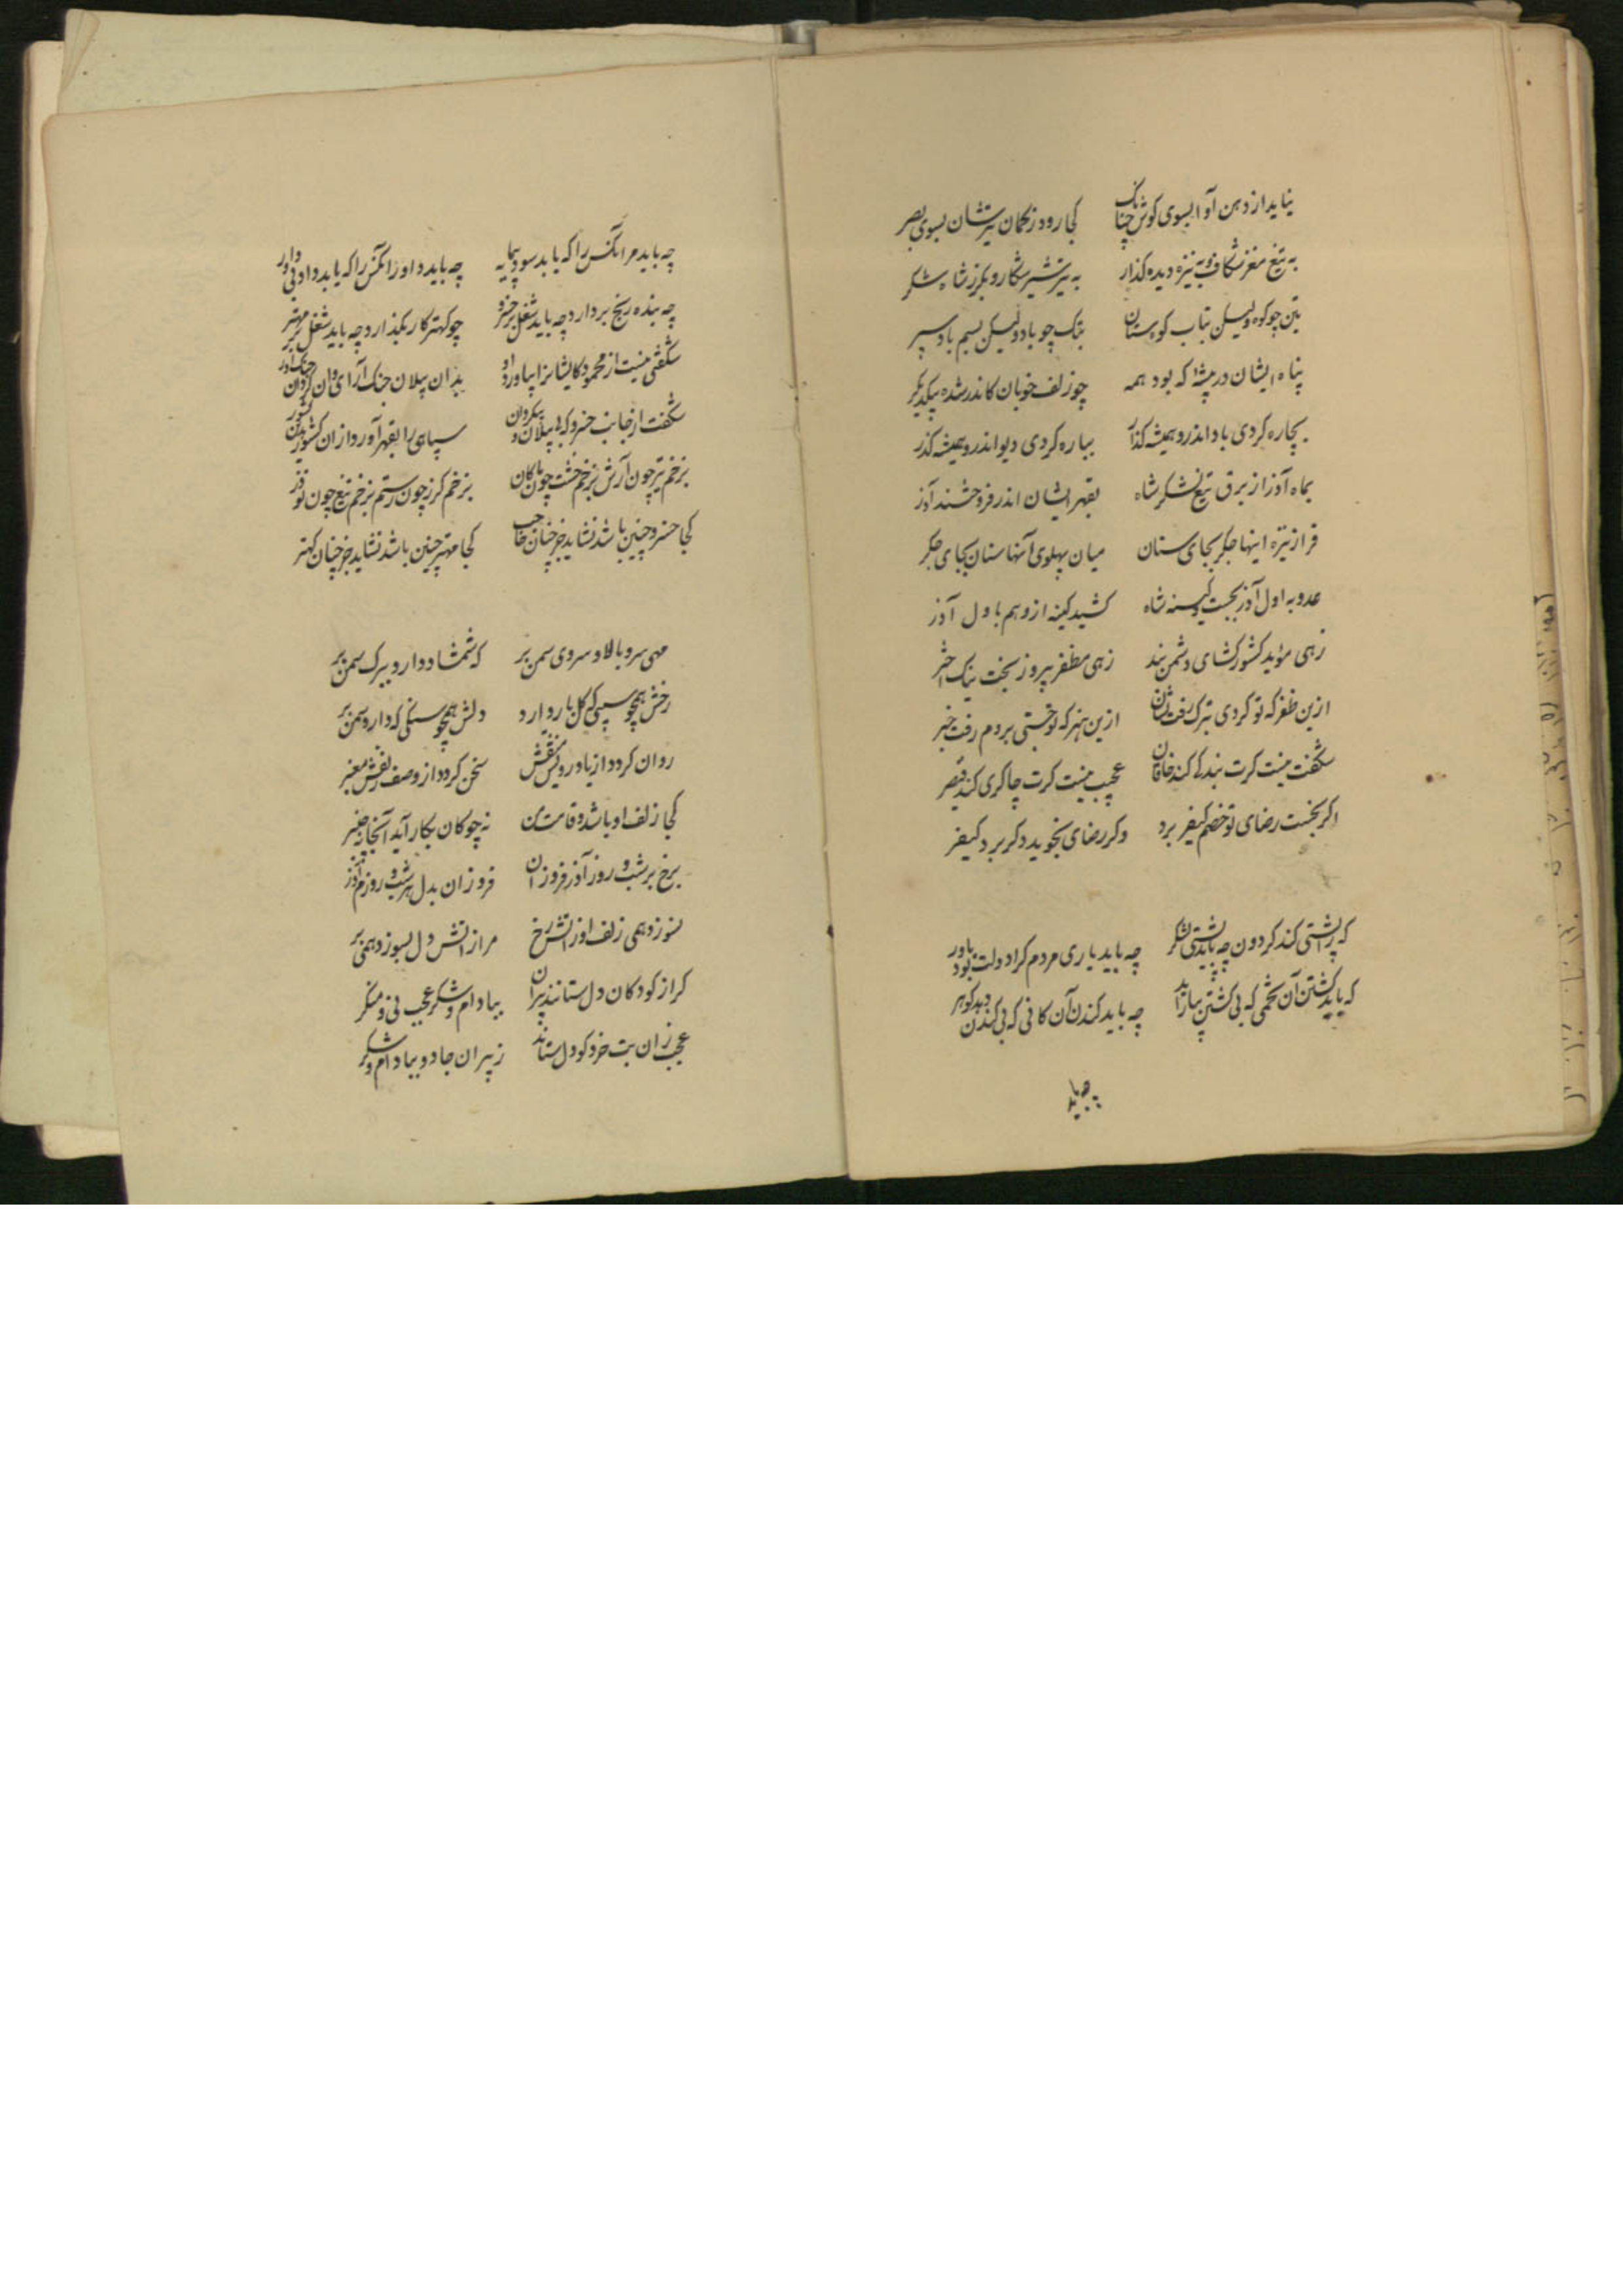 نیاید از دهن آوا بسوی کوش چنانک کجا رود ز کمان تیرشان بسوی بصر
به تیغ مغز شکاف و به نیزه دیده کذار به تیر شیر شکار و بکرز شاه شکر
بتن چو کوه ولیکن بتاب کوهستان بتک چو باد ولیکن بسیم باد سپر
پناه ایشان در بیشهٔ که بود همه چو زلف خوبان کاندر شده بیکدیکر
بچاره کردی باد اندرو همیشه کذار بباره کردی دیو اندرو همیشه کذر
بماه آذر از برق تیغ لشکر شاه بقهر ایشان اندر فروختند آذر
فراز نیزه اینها جکر بجای سنان میان پهلوی آنها سنان بجای جکر
عدو به اول آذر بجست کینه شاه کشید کینه ازو هم باول آذر
زهی مؤید کشور کشای دشمن بند زهی مظفر پیروز بخت نیک اختر
ازین ظفر که تو کردی بترک رفت نشان ازین هنر که تو جستی بروم رفت خبر
شکفت نیست کرت بندکی کند خاقان عجب نیست کرت چاکری کند قیصر
اکر بجست رضای تو خصم کیفر برد وکر رضای نجوید دکر برد کیفر
که را پشتی کند کردون چه باید پشتی لشکر چه باید یاری مردم کرا دولت بود یاور
که باید کشتن آن تخمی که بی کشتن ببار آید چه باید کندن آن کانی که بی کندن دهد کوهر
چه باید
چه باید مر آنکس را که یابد سود بی‌مایه چه باید داور آنکس را که یابد داد بی داور
چه بنده رنج بردارد چه باید شغل بر خسرو چو کهتر کار بکذارد چه باید شغل بر مهتر
شکفتی نیست از محمود کایشانرا بیاورد او بدان پیلان جنک آرای وان کردان جنک آور
شکفت از جانب خسرو که بی پیلان و بی کردان سپاهی را بقهر آورد ازان کشور بدین کشور
بزخم تیر چون آرش بزخم خشت چون ماکان بزخم کرز چون رستم بزخم تیغ چون نوذر
کجا خسرو چنین باشد نشاید جز چنان حاجب کجا مهتر چنین باشد نشاید جز چنان کهتر
مهی سرو بالا و سروی سمن بر که شمشاد دارد ببرک سمن بر
رخش همچو سیبی که کل بار دارد دلش همچو سنکی که دارد سمن بر
روان کردد از یاد رویش منقش سخن کردد از وصف زلفش معنبر
کجا زلف او باشد و قامت من نه چوکان بکار آید آنجا نه چنبر
برخ بر شب و روز آذر فروزان فروزان بدل بر شب و روزم آذر
نسوزد همی زلف او زاتش رخ مرا ز اتش دل بسوزد همی بر
کر از کودکان دل ستانند پیران ببادام و شکر عجب نی و منکر
عجب زان بت خرد کو دل ستاند ز پیران جادو ببادام و شکر